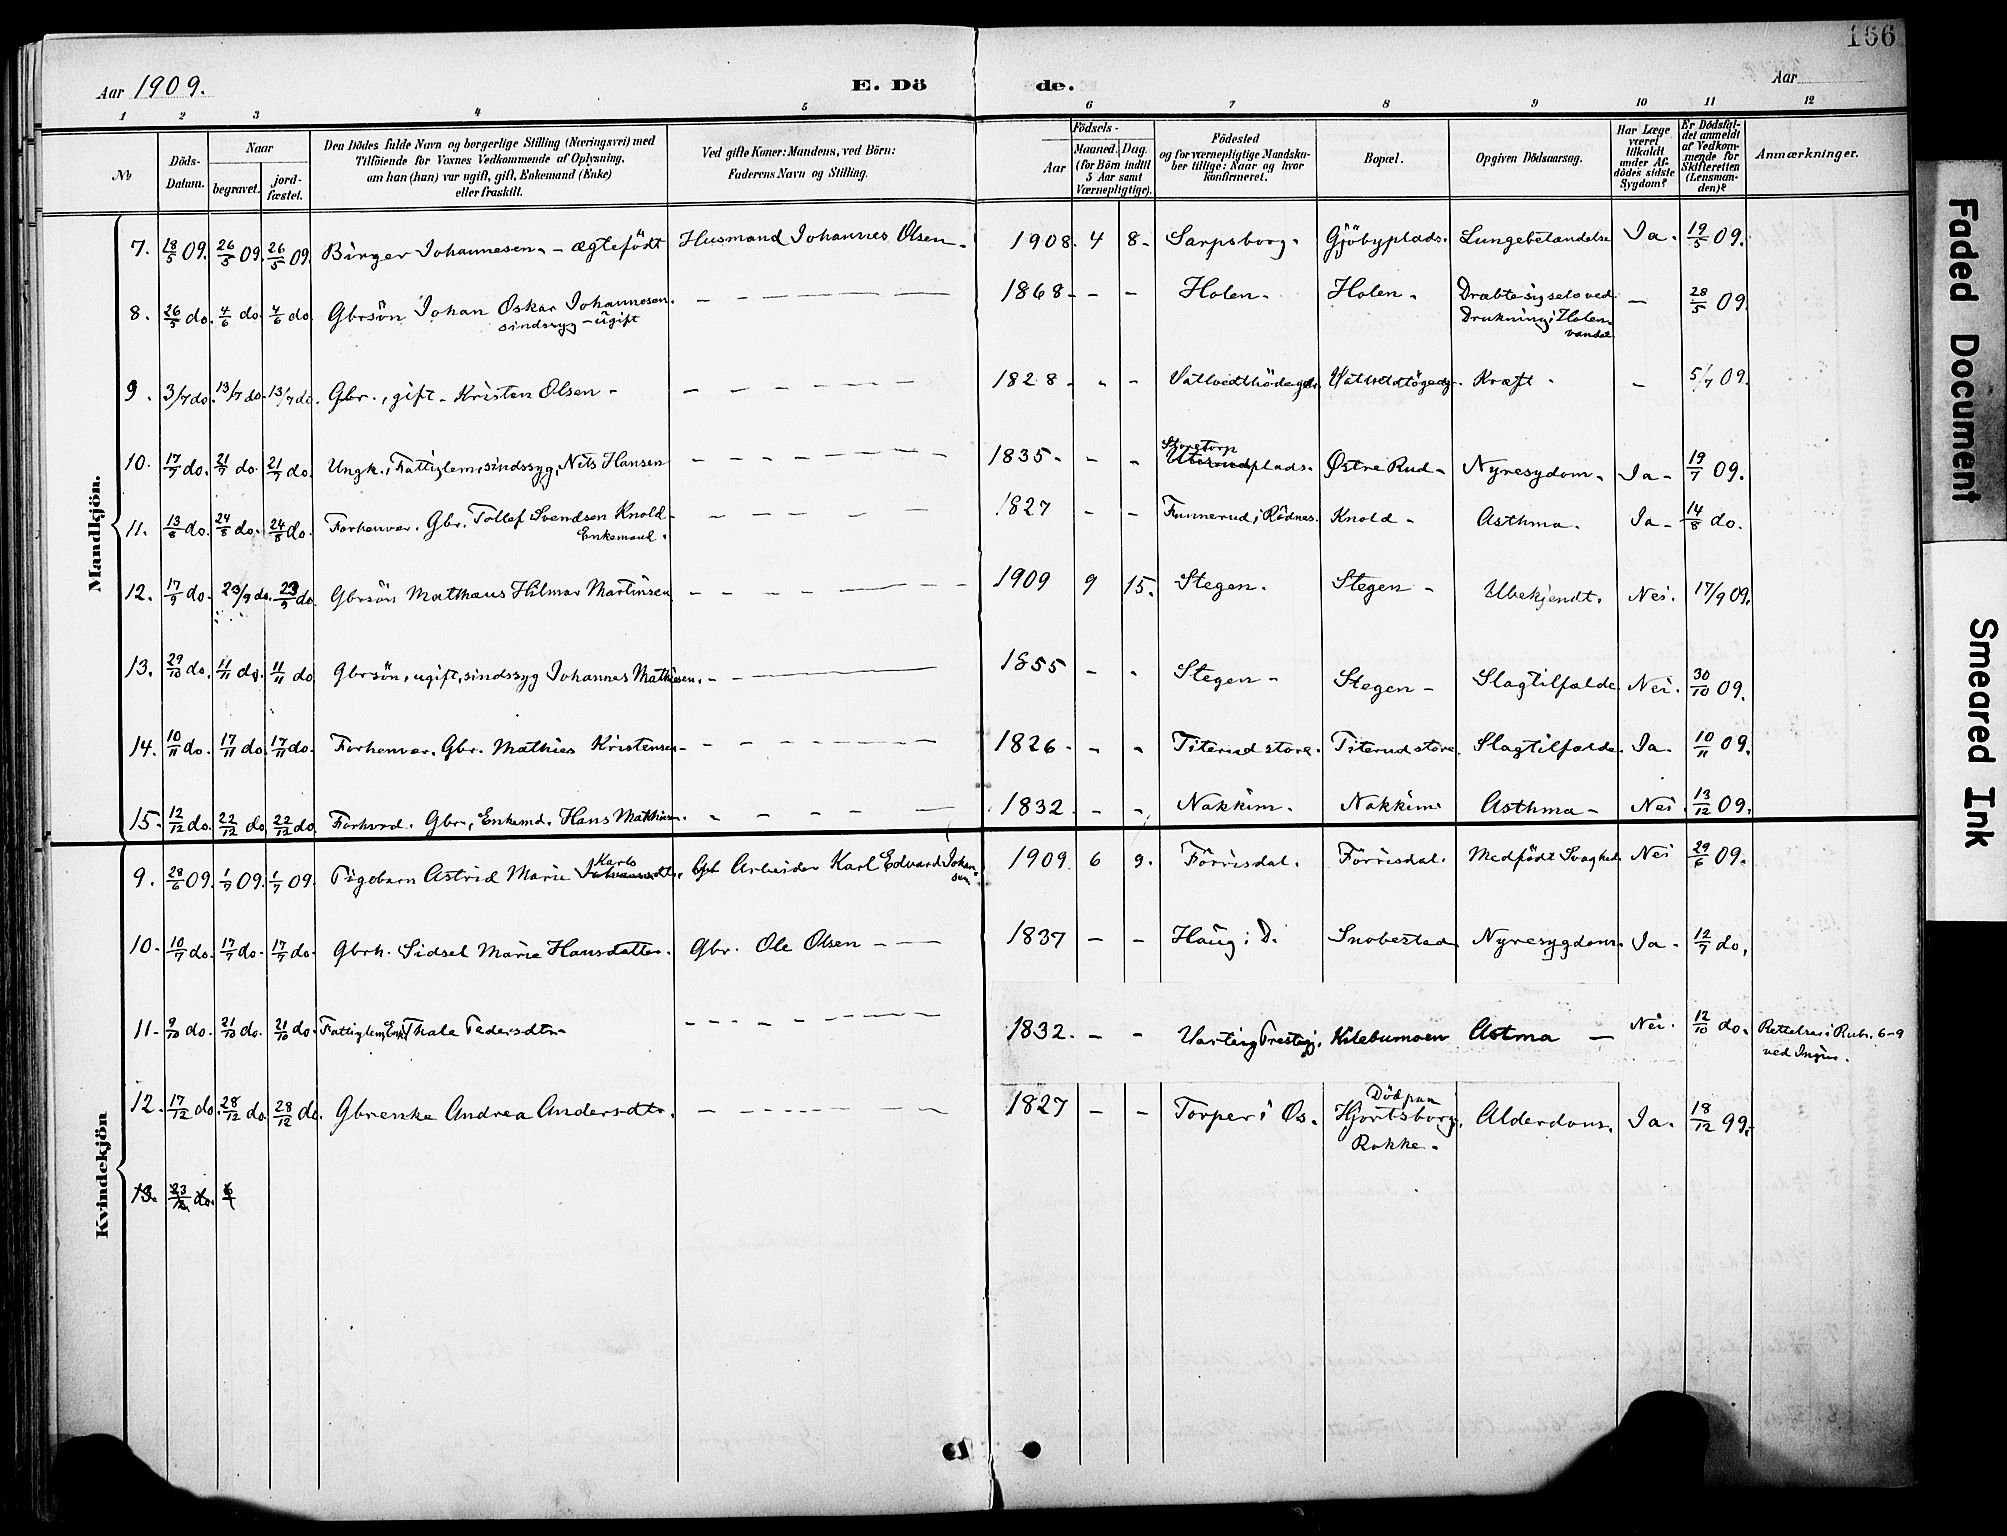 166
Aar 1909.
E. Dö de.
Aar
1 2 3 4 5 6 7 8 9 10 11 12
No
Döds-Datum.
Naar
begravet.
jord-fæstet.
Den Dödes fulde Navn og borgerlige Stilling (Næringsvei) med
Tilföiende for Voxnes Vedkommende af Oplysning,
om han (hun) var ugift, gift, Enkemand (Enke)
eller fraskilt.
Ved gifte Koner: Mandens, ved Börn:
Faderens Navn og Stilling.
Födsels-
Aar
Maaned. Dag.
(for Börn indtil
5 Aar samt
Værnepligtige).
Födested
og for værnepligtige Mandska-
ber tillige: Naar og hvor
konfirmeret.
Bopæl.
Opgiven Dödsaarsag.
Har Læge
været
tilkaldt
under Af-
dödes sidste
Sygdom?
Er Dödsfal-
det anmeldt
af Vedkom-
mende for
Skifteretten
(Lensman-
den)?
Anmærkninger.
Mandkjön.
7. 18/5 09. 26/5 09. 26/5 09. Birger Johannesen. - ægtefödt Husmand Johannes Olsen. 1908. 4 8. Sarpsborg. Gjöbyplads. Lungebetændelse Ja. 19/5 09.
8. 26/5 do. 4/6 do. 4/6 do. Gbrsön Johan Oskar Johannesen. 1868 - - Holen. Holen. Dræbte sig selv ved - 28/5 09.
sindssyg - ugift Drukning i Holen-
vandet
9. 3/7 do. 13/7 do. 13/7 do. Gbr., gift - Kristen Olsen - 1828 - - Kræft. - 5/7 09.
10. 17/7 do. 21/7 do. 21/7 do. Ungk., Fattiglem, sindssyg, Nils Hansen 1835 - - Storetorp
plads. Østre Rud - Nyresydom. Ja - 19/7 09.
11. 13/8 do. 24/8 do. 24/8 do. Forhenvær. Gbr. Tollef Svendsen Knold - 1827 - - Funnerud i Rödnes. Knold - Asthma. Ja - 14/8 do.
Enkemand.
12. 17/9 do. 23/9 do. 23/9 do. Gbrsön Matthæus Hilmar Martinsen 1909 9 15. Stegen. Stegen - Ubekjendt. Nei. 17/9 09.
13. 29/10 do. 11/11 do. 11/11 do. Gbrsön, ugift, sindssyg Johannes Mathiesen. 1855 - - Stegen - Stegen - Slagtilfælde. Nei. 30/10 09.
14. 10/11 do. 17/11 do. 17/11 do. Forhenvær. Gbr. Mathies Kristensen - 1826 - - Titerud store. Titerud store. Slagtilfælde. Ja. 10/11 09.
15. 12/12 do. 22/12 do. 22/12 do. Forhvrd. Gbr., Enkemd. Hans Mathiesen. 1832 - - Nakkim. Nakkim. Asthma - Nei. 13/12 09.
Kvindekjön
9. 28/6 09. 1/7 09. 1/7 09. Pigebarn Astrid Marie Karls dtr. Arbeider Karl Edvard Johan-
sen 1909. 6 9. Förrisdal. Förrisdal. Medfödt Svaghed. Nei 29/6 09.
10. 10/7 do. 17/7 do. 17/7 do. Gbrh. Sidsel Marie Hansdatter. Gbr. Ole Olsen - 1837 - - Haug i D. Snobestad Nyresygdom. Ja. 12/7 do.
11. 9/10 do. 21/10 do. 21/10 do. Fattiglem, Enke Thale Pedersdtr. 1832. - - Varteig Prestigj. Kilebumoen Astma - Nei. 12/10 do. Rettelser i Rubr. 6-9
ved
12. 17/12 do. 28/12 do. 28/12 do. Gbrenke Andrea Andersdtr. 1827 - - Torper i Os. Död paa
Hjortsborg, Alderdoms. Ja. 18/12 99.
Rokke.
13. 23/12 do.
Faded Document
Smeared Ink